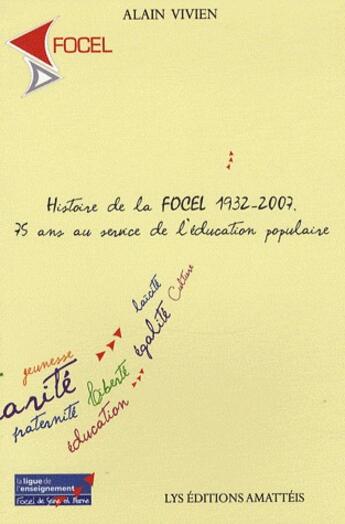 ALAIN VIVIEN
FOCEL
Histoire de la FOCEL 1932-2007.
75 ans au service de l'éducation populaire
laïcité
Culture
égalité
jeunesse
arité
liberté
fraternité
éducation
la ligue de
l'enseignement
Focel de Seine et Marne
LYS ÉDITIONS AMATTÉIS